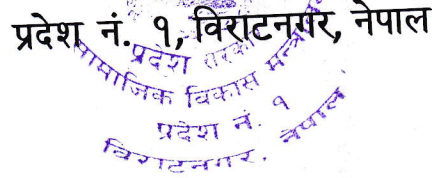 प्रदेश नं. १, विराटनगर, नेपाल
प्रदेश सरकार
सामाजिक विकास मन्त्रालय
प्रदेश नं. १
विराटनगर, नेपाल